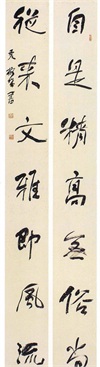 自是精高無俗尚
從来文雅即風流